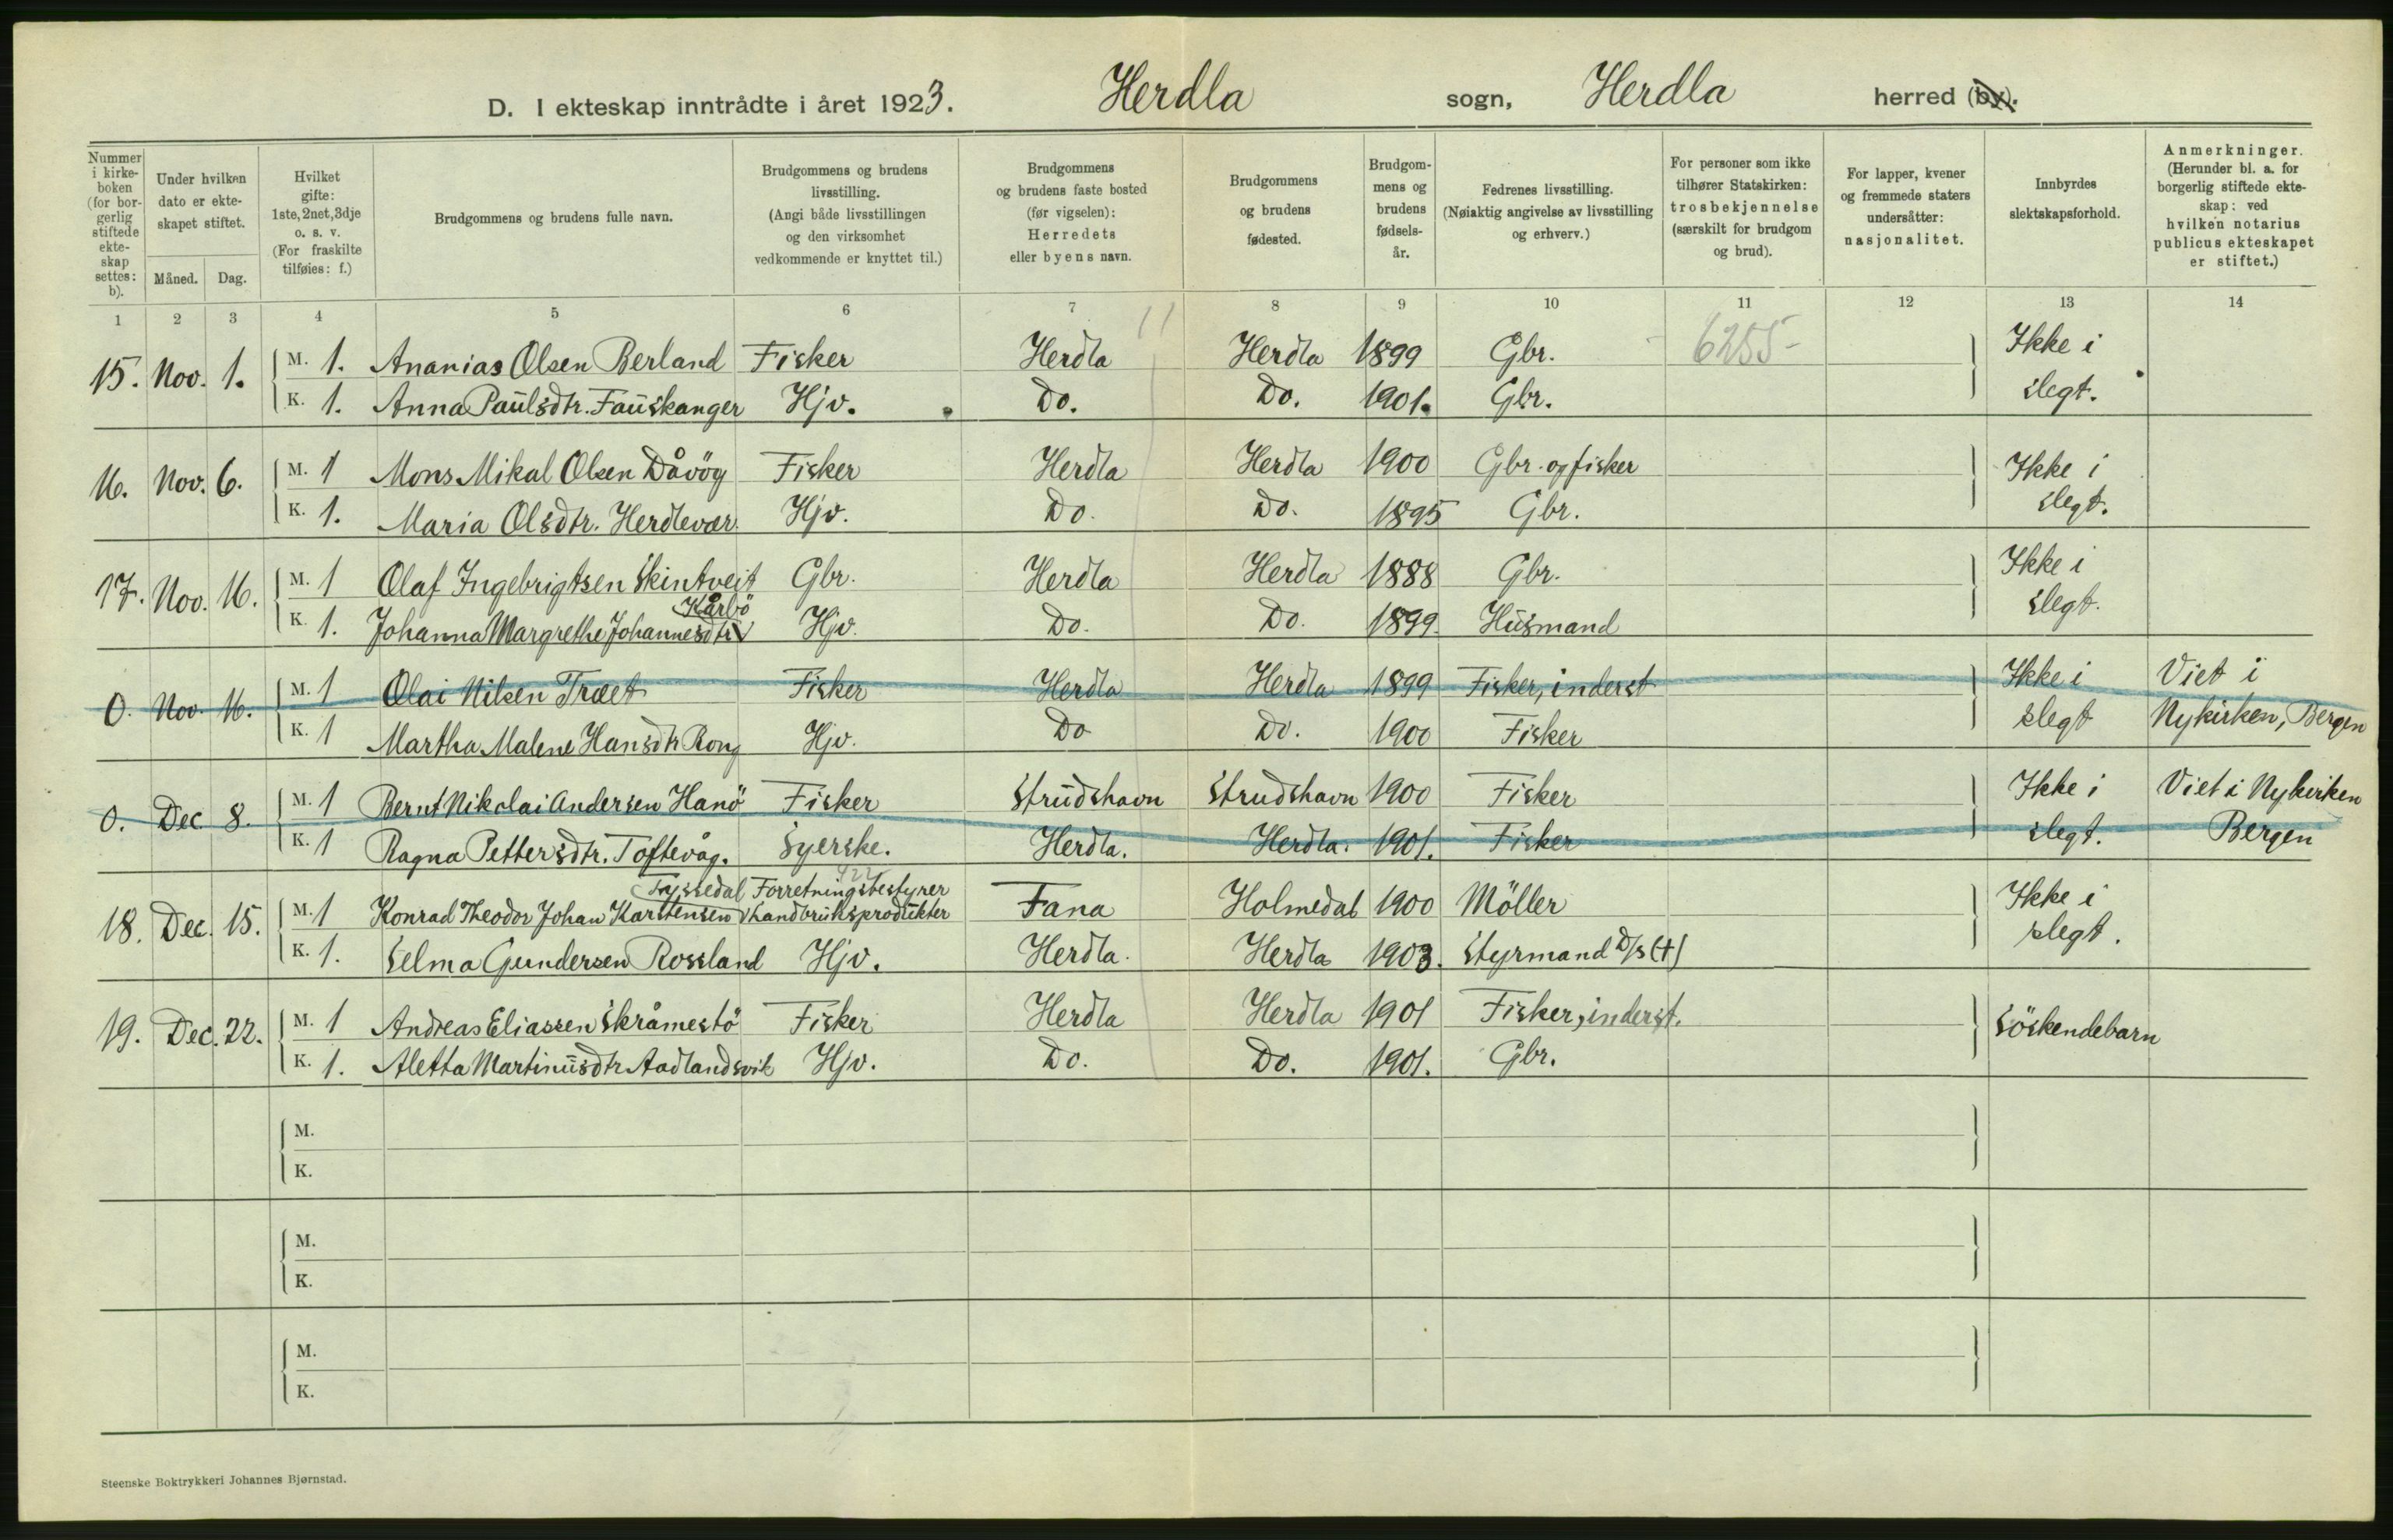 D. I ekteskap inntrådte i året 1923. Herdla sogn, Herdla herred (by).
Nummer i kirke-boken (for bor-gerlig stiftede ekte-skap settes: b).
Under hvilken dato er ekte-skapet stiftet.
Måned. Dag.
Hvilket gifte: 1ste, 2net, 3dje o. s. v. (For fraskilte tilføies: f.)
Brudgommens og brudens fulle navn.
Brudgommens og brudens livsstilling. (Angi både livsstillingen og den virksomhet vedkommende er knyttet til.)
Brudgommens og brudens faste bosted (før vigselen): Herredets eller byens navn.
Brudgommens og brudens fødested.
Brudgom-mens og brudens fødsels-år.
Fedrenes livsstilling. (Nøiaktig angivelse av livsstilling og erhverv.)
For personer som ikke tilhører Statskirken: trosbekjennelse (særskilt for brudgom og brud).
For lapper, kvener og fremmede staters undersåtter: nasjonalitet.
Innbyrdes slektskapsforhold.
Anmerkninger. (Herunder bl. a. for borgerlig stiftede ekte-skap: ved hvilken notarius publicus ekteskapet er stiftet.)
1 2 3 4 5 6 7 8 9 10 11 12 13 14
15. Nov. 1. M. 1. Ananias Olsen Berland Fisker Herdla Herdla 1899 Gbr. 6255- Ikke i
K. 1. Anna Paulsdtr. Fauskanger Hjv. Do. Do. 1901. Gbr. slegt.
16. Nov. 6. M. 1 Mons Mikal Olsen Dåvög Fisker Herdla Herdla 1900 Gbr. og fisker Ikke i
K. 1. Maria Olsdtr. Herdlevær Hjv. Do. Do. 1895 Gbr. slegt.
17. Nov. 16. M. 1 Olaf Ingebrigtsen Skintveit Gbr. Herdla Herdla 1888 Gbr. Ikke i
Kårbö
K. 1. Johanna Margrethe Johannesdtr Hjv. Do. Do. 1899. Husmand slegt.
0. Nov. 16. M. 1 Olai Nilsen Træet Fisker Herdla Herdla 1899 Fisker, inderst Ikke i Viet i
K. 1 Martha Malene Hansdtr Rong Hjv. Do Do. 1900 Fisker slegt Nykirken, Bergen
0. Dec. 8. M. 1 Bernt Nikolai Andersen Hanö Fisker Strudshavn Strudshavn 1900 Fisker Ikke i Viet i Nykirken
K. 1 Ragna Pettersdtr. Toftevåg. Syerske. Herdla. Herdla. 1901. Fisker slegt. Bergen
Tyssedal Forretningsbestyrer
18. Dec. 15. M. 1 Konrad Theodor Johan Karstensen Landbruksprodukter Fana Holmedal 1900 Möller Ikke i
K. 1. Selma Gundersen Rossland Hjv. Herdla. Herdla 1903. Styrmand D/s (+) slegt.
19. Dec. 22. M. 1 Andreas Eliassen Skråmestö Fisker Herdla Herdla 1901 Fisker, inderst. Söskendebarn
K. 1. Aletta Martinusdtr Aadlandsvik Hjv. Do. Do. 1901. Gbr.
M.
K.
M.
K.
M.
K.
Steenske Boktrykkeri Johannes Bjørnstad.